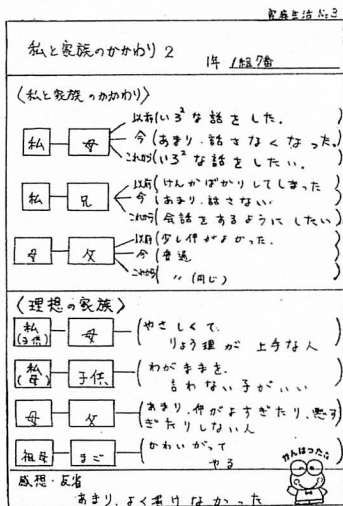 家庭生活 No.3
私と家族のかかわり 2
1年 1組7番
〈私と家族のかかわり〉
私 母
以前(いろ²な話をした。
今(あまり、話さなくなった。
これから(いろ²な話をしたい。
私 兄
以前(けんかばかりしてしまった
今(あまり、話さない
これから(会話をするようにしたい
母 父
以前(少し仲がよかった。
今(普通
これから(〃(同じ)
〈理想の家族〉
私(子供) 母 (やさしくて、
りょう理が 上手な人
私(母) 子供 (わがままを、
言わない子がいい
母 父 (あまり、仲がよすぎたり、悪す
ぎたりしない人
祖母 まご (かわいがって
やる
がんばったね
感想・反省
あまり、よく書けなかった